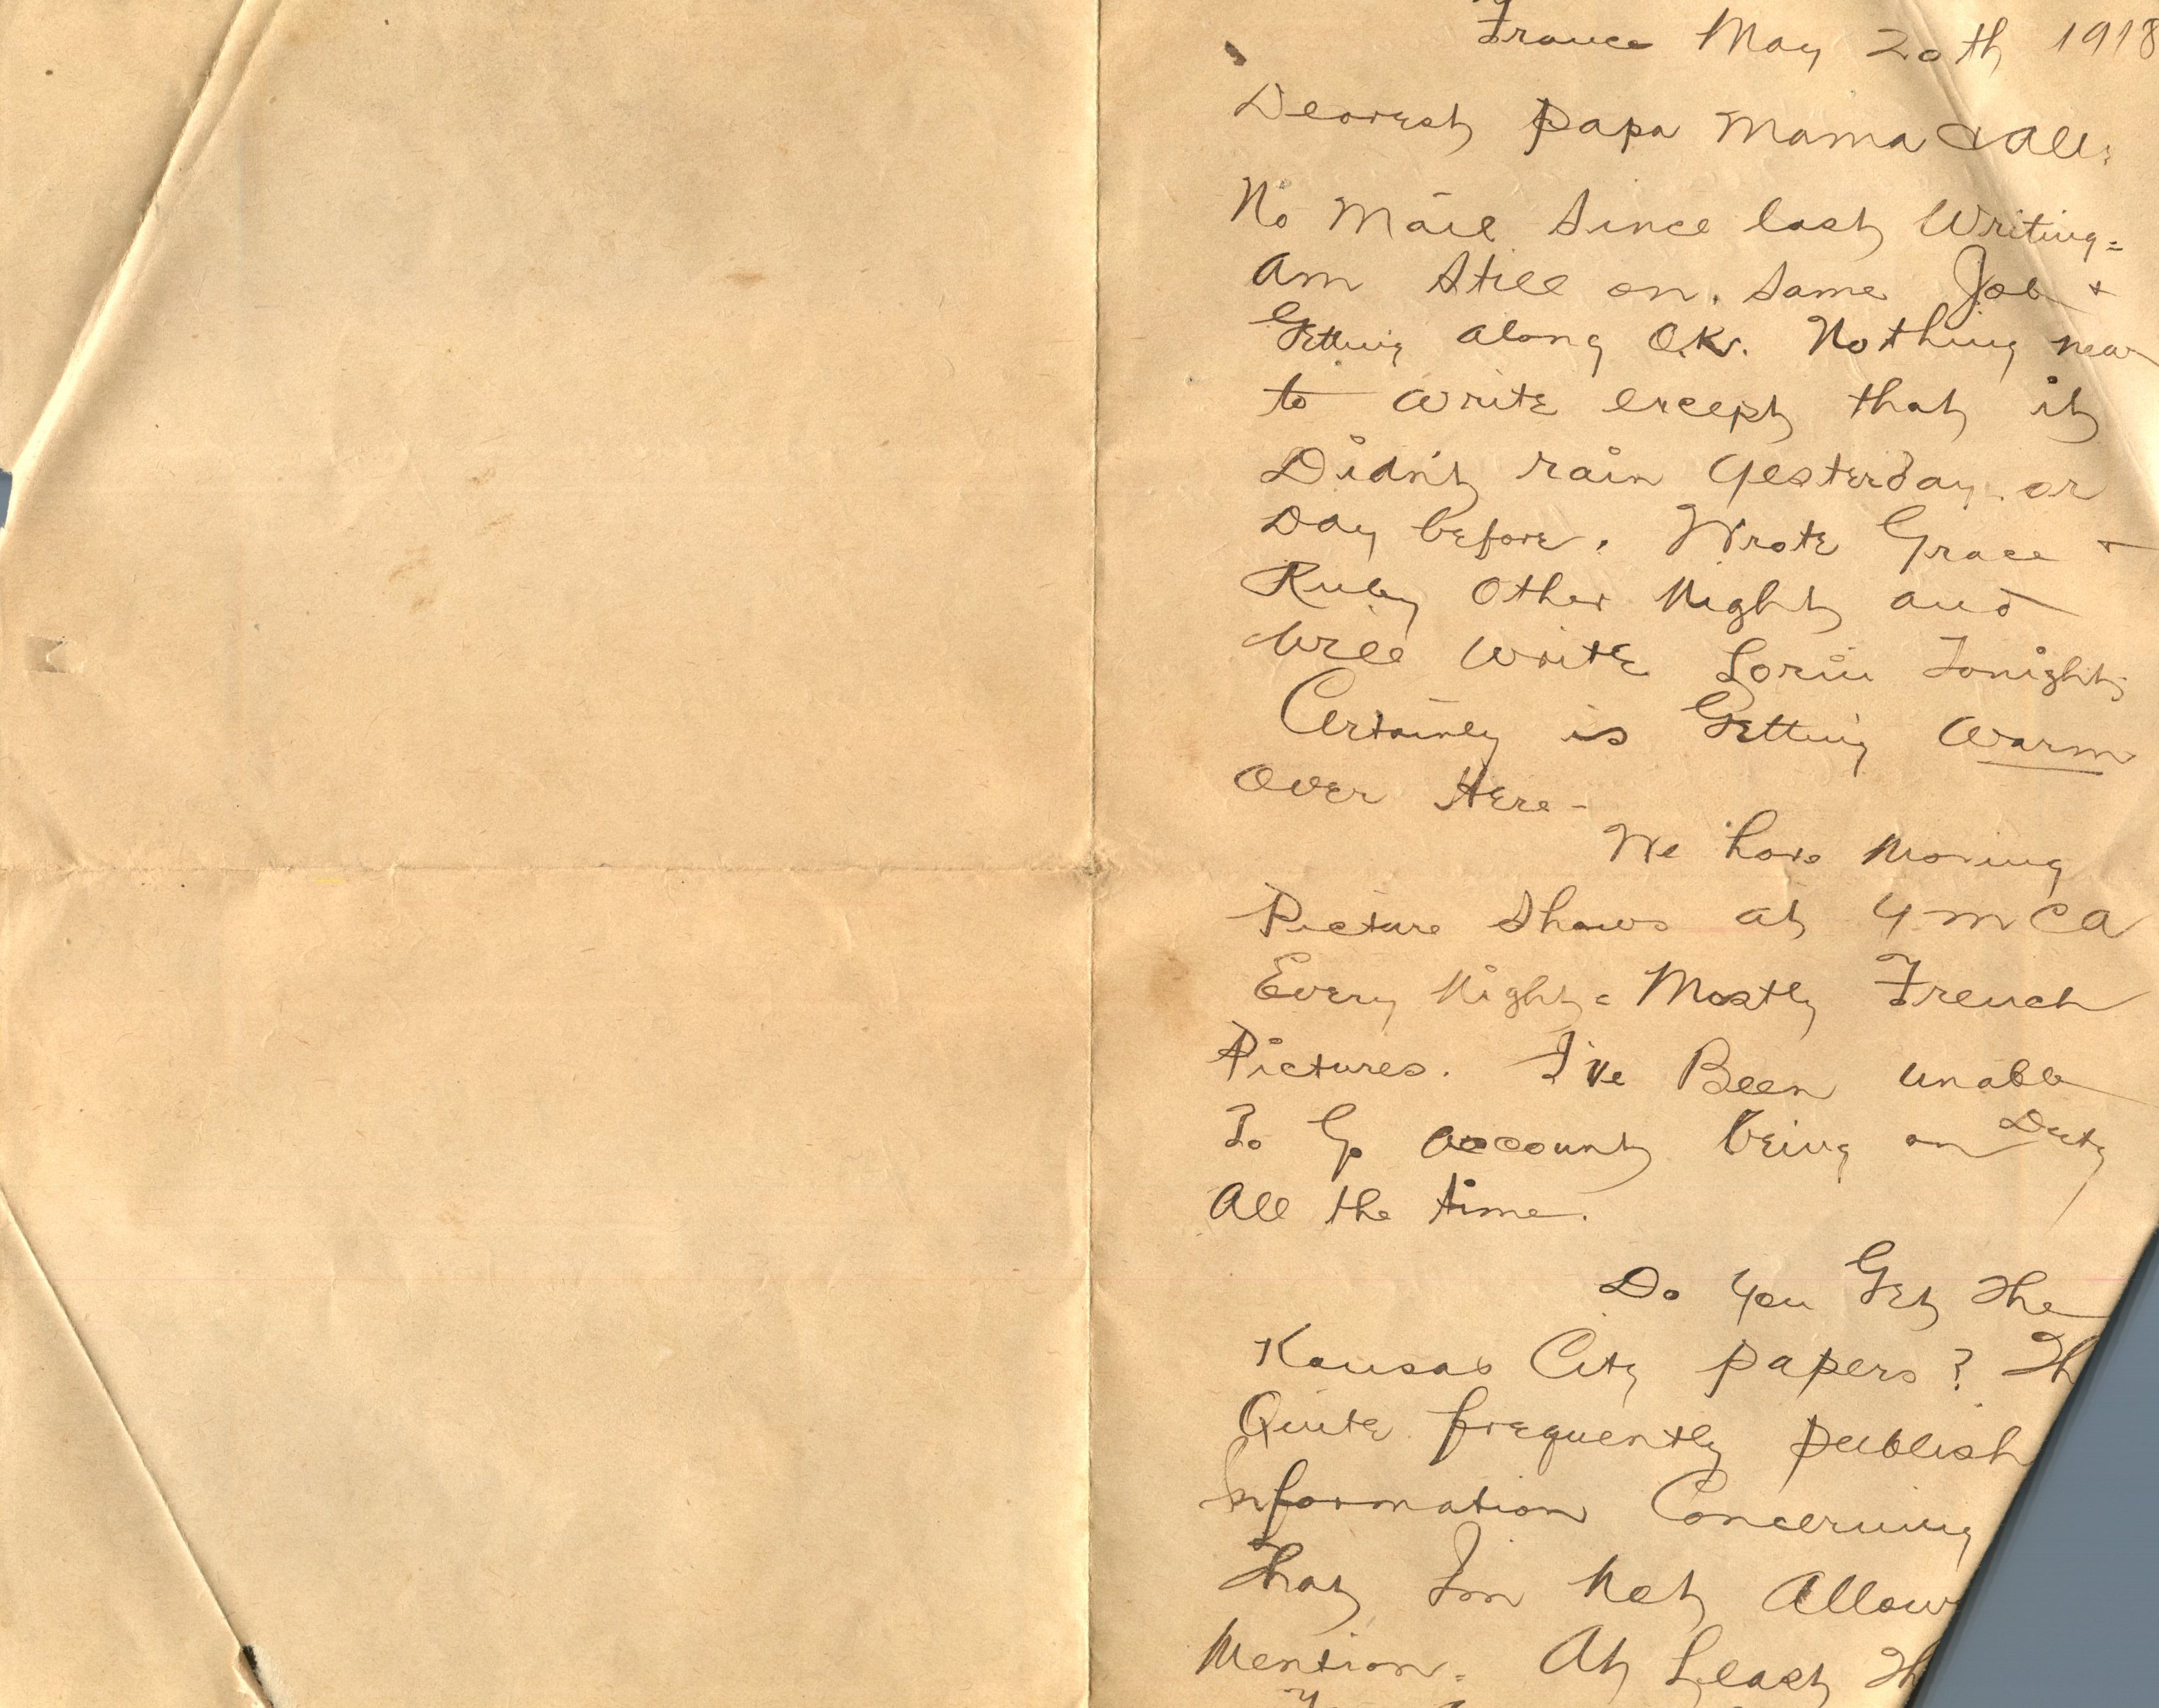 France May 20th 1918
Dearest Papa Mama & All:
No Mail Since last Writing=
Am Still on. Same Job +
Getting along O.K. Nothing new
to write except that it
Didn't rain Yesterday or
Day before. Wrote Grace +
Ruby Other Night and
Will Write Lorin Tonight
Certainly is Getting Warm
Over Here -
We have Moving
Picture Shows at YMCA
Every Night = Mostly French
Pictures. I've Been unable
To Go account being on Duty
All the time.
Do You Get The
Kansas City papers? Th
Quite frequently publish
Information Concerning
That I'm Not Allow
Mention. At Least Th